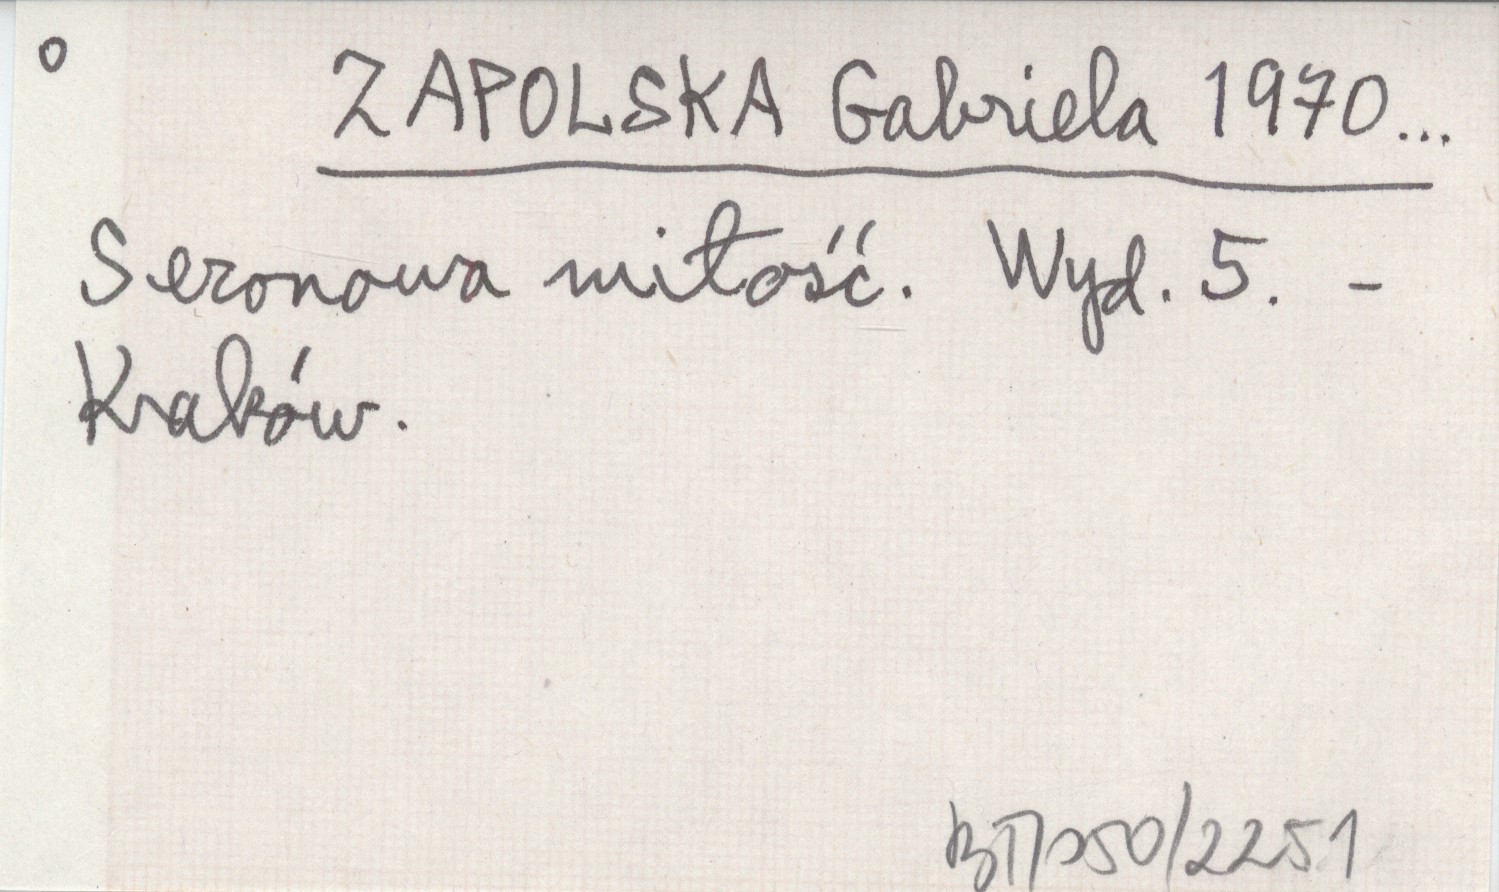 o
ZAPOLSKA Gabriela 1970...
Sezonowa miłość. Wyd. 5. -
Kraków.
/2251